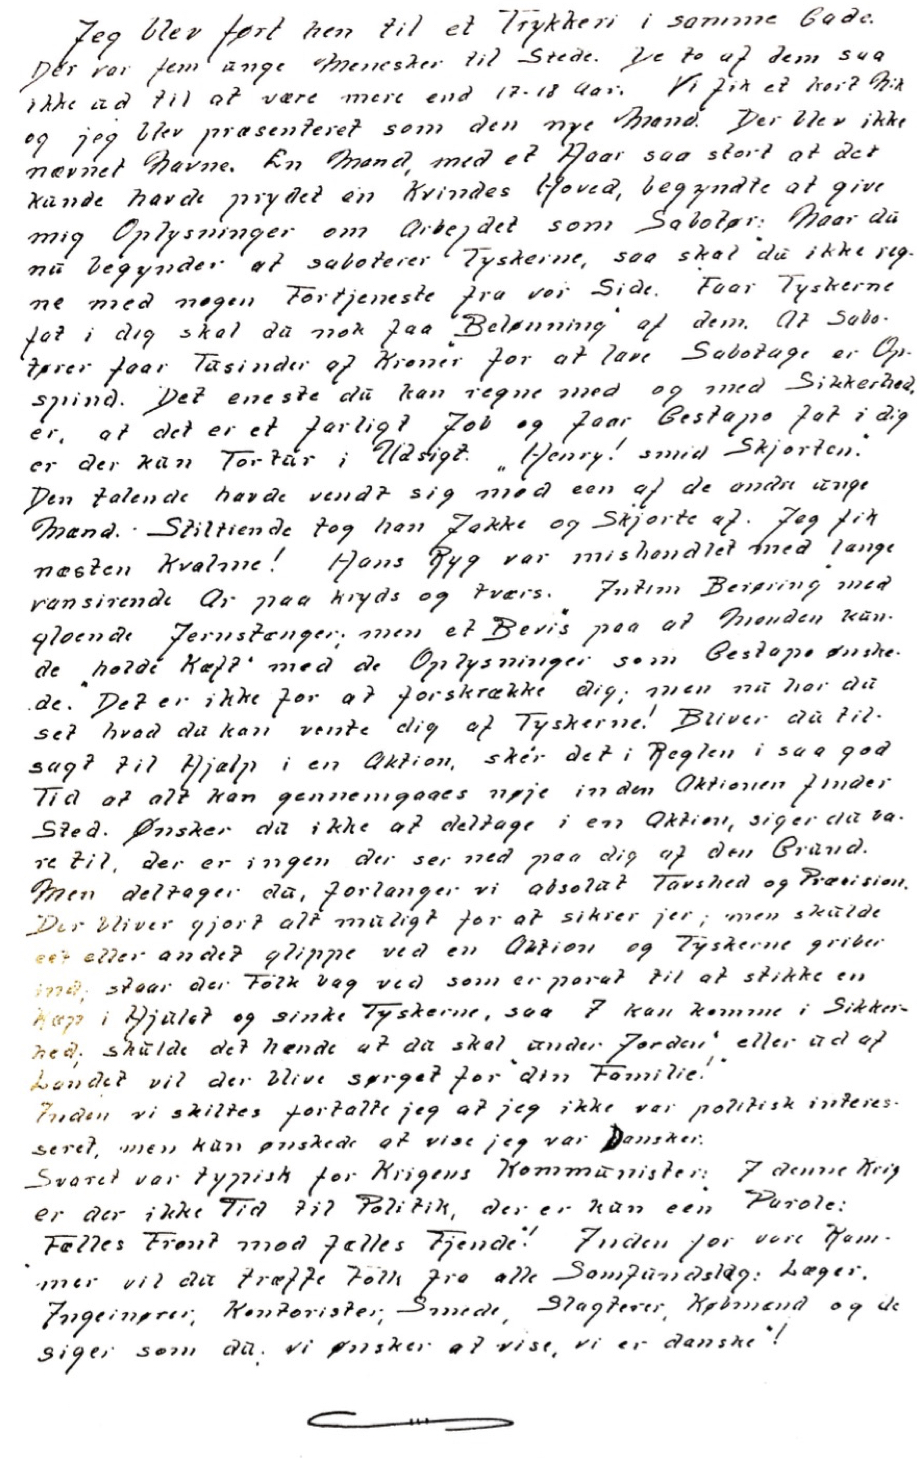 Jeg blev ført hen til et Trykkeri i samme Gade.
Der var fem unge Menesker til Stede. De to af dem saa
ikke ud til at være mere end 17-18 Aar. Vi fik et kort Nik
og jeg blev præsenteret som den nye Mand. Der blev ikke
nævnet Navne. En Mand, med et Haar saa stort at det
kunde havde prydet en Kvindes Hoved, begyndte at give
mig Oplysninger om Arbejdet som Sabotør: "Naar du
nu begynder at saboterer Tyskerne, saa skal du ikke reg-
ne med nogen Fortjeneste fra vor Side. Faar Tyskerne
fat i dig skal du nok faa "Belønning" af dem. At Sabo-
tører faar Tusinder af Kroner for at lave Sabotage er Op-
spind. Det eneste du kan regne med og med Sikkerhed,
er, at det er et farligt Job og faar Gestapo fat i dig
er der kun Tortur i Udsigt. "Henry! smid Skjorten."
Den talende havde vendt sig mod een af de andre unge
Mænd. Stiltiende tog han Jakke og Skjorte af. Jeg fik
næsten Kvalme! Hans Ryg var mishandlet med lange
vansirende Ar paa kryds og tværs. Intim Berøring med
gloende Jernstænger; men et Bevis paa at Manden kun-
de "holde Kæft" med de Oplysninger som Gestapo ønske-
de. "Det er ikke for at forskrække dig; men nu har du
set hvad du kan vente dig af Tyskerne! Bliver du til-
sagt til Hjælp i en Aktion, sker det i Reglen i saa god
Tid at alt kan gennemgaaes nøje inden Aktionen finder
Sted. Ønsker du ikke at deltage i en Aktion, siger du ba-
re til, der er ingen der ser ned paa dig af den Grund.
Men deltager du, forlanger vi absolut Tavshed og Præcision.
Der bliver gjort alt muligt for at sikrer jer; men skulde
eet eller andet glippe ved en Aktion og Tyskerne griber
ind, staar der Folk bag ved som er parat til at stikke en
Kæp i Hjulet og sinke Tyskerne, saa I kan komme i Sikker-
hed; skulde det hænde at du skal "under Jorden" eller ud af
Landet vil der blive sørget for din Familie!"
Inden vi skiltes fortalte jeg at jeg ikke var politisk interes-
seret, men kun ønskede at vise jeg var Dansker.
Svaret var typisk for Krigens Kommunister: "I denne Krig
er der ikke Tid til Politik, der er kun een Parole:
Fælles Front mod fælles Fjende"! Inden for vore Ram-
mer vil du træffe Folk fra alle Samfundslag: Læger,
Ingeinører, Kontorister, Smede, Slagterer, Købmænd og de
siger som du; vi ønsker at vise, vi er danske"!